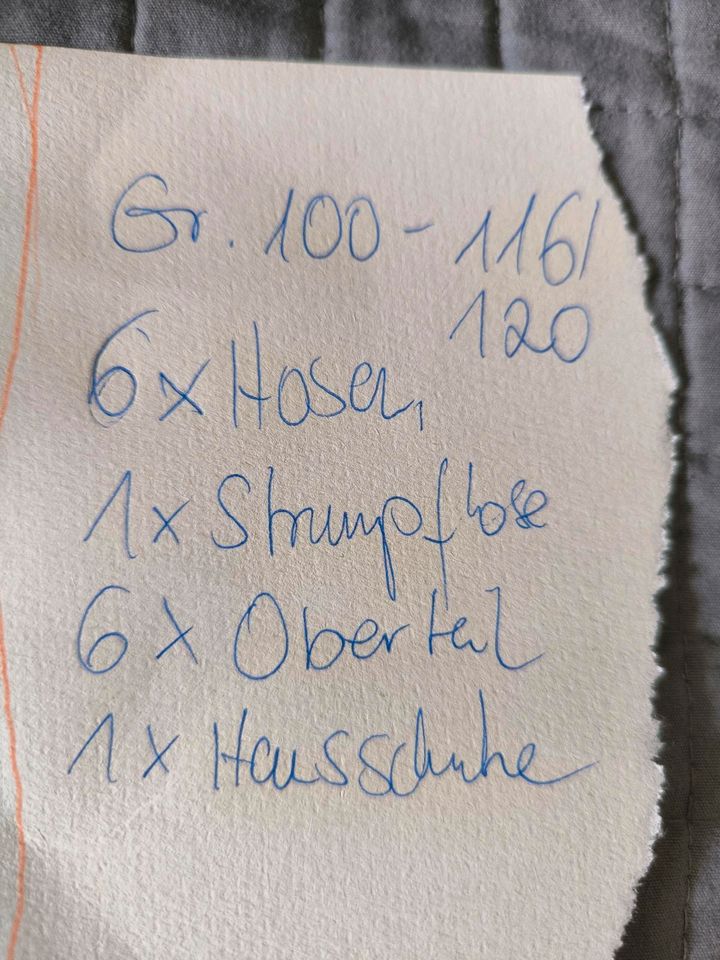 Gr. 100 - 116/
120
6 x Hosen,
1x Strumpfhose
6 x Oberteil
1x Hausschuhe